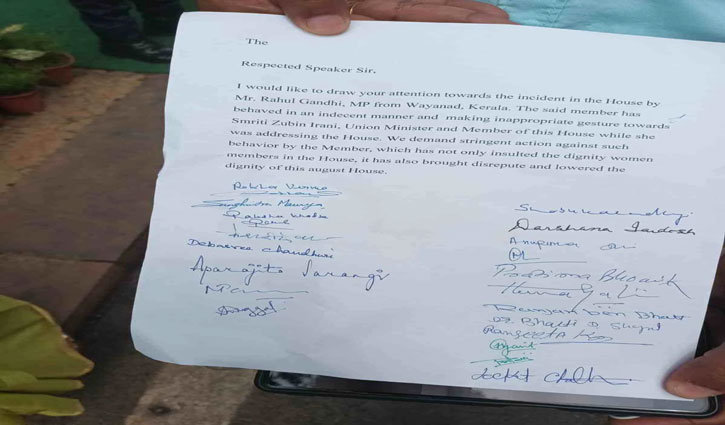 The
Respected Speaker Sir.
I would like to draw your attention towards the incident in the House by
Mr. Rahul Gandhi, MP from Wayanad, Kerala. The said member has
behaved in an indecent manner and making inappropriate gesture towards
Smriti Zubin Irani, Union Minister and Member of this House while she
was addressing the House. We demand stringent action against such
behavior by the Member, which has not only insulted the dignity women
members in the House, it has also brought disrepute and lowered the
dignity of this august House.
Rekha Verma
Sanghmitra Maurya
Raksha Khadse
Debasree Chaudhuri
Aparajita Sarangi
Darshana Jardosh
Anupriya
Pratima Bhoumik
Ranjan Ben Bhatt
Bharti D Shyal
Rangeeta
Locket Chatterjee